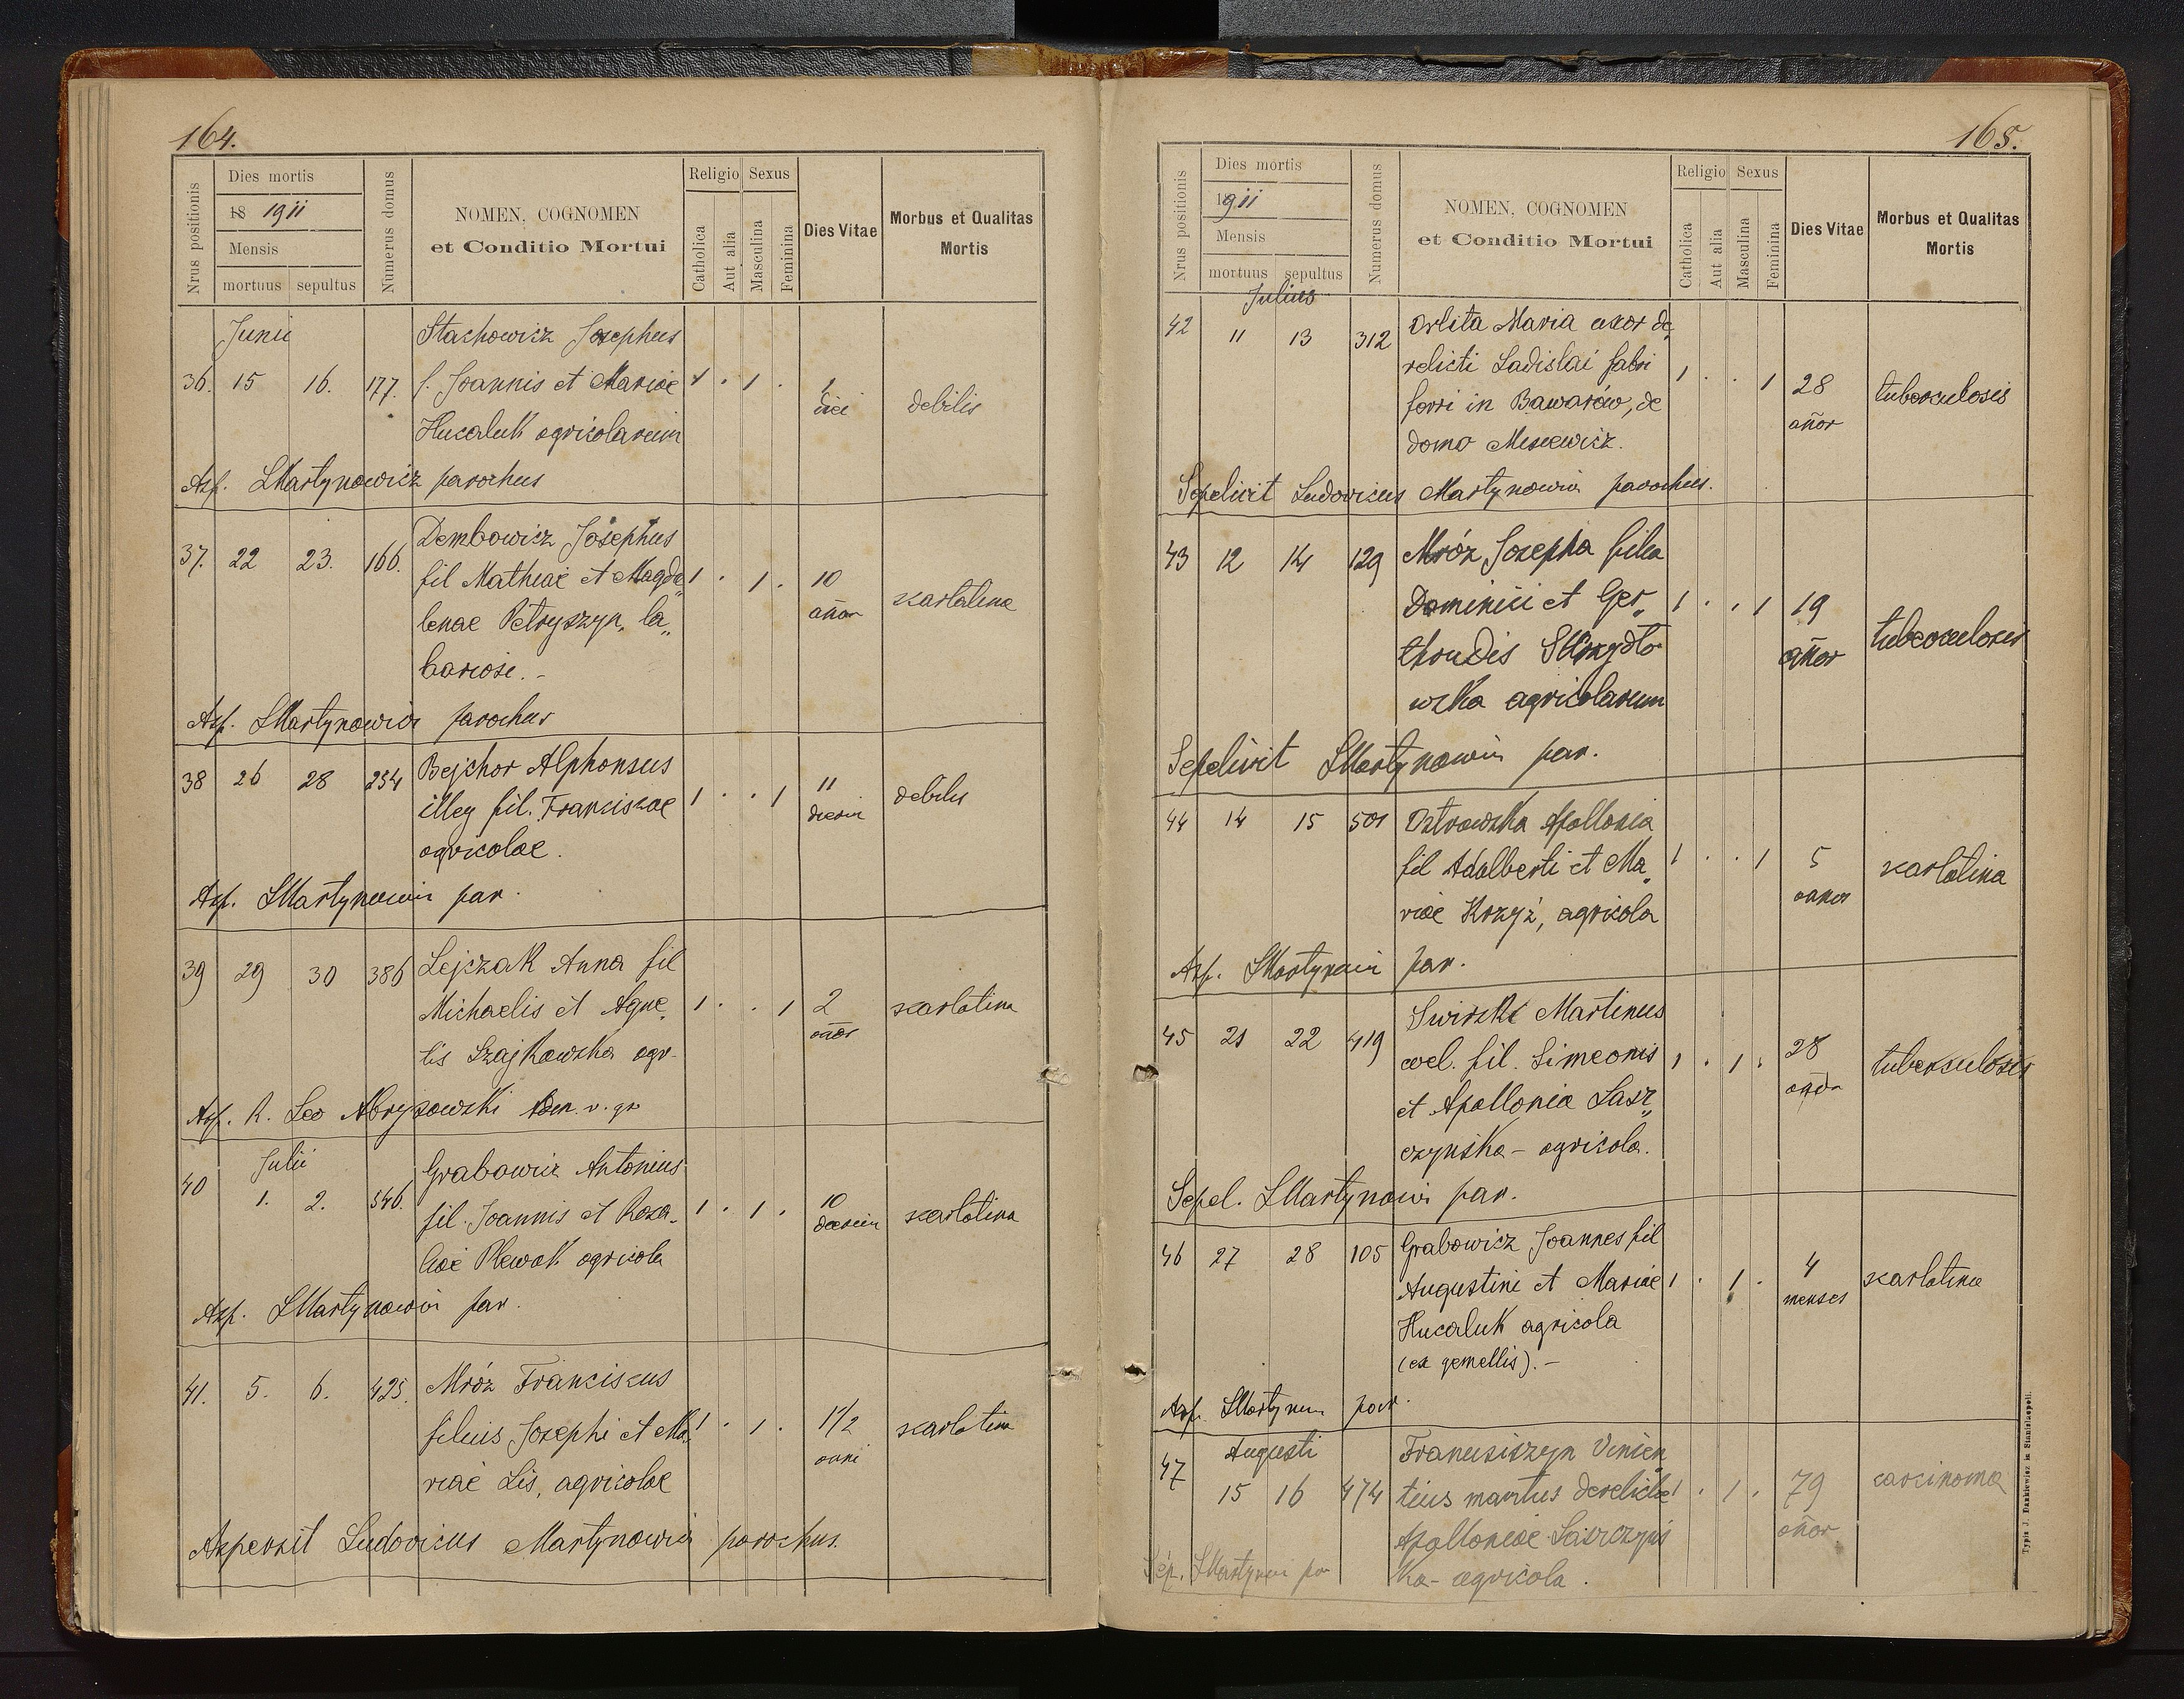 164.
Nrus positionis
Dies mortis
18 1911
Mensis
mortuus sepultus
Numerus domus
NOMEN, COGNOMEN
et Conditio Mortui
Religio
Catholica
Aut alia
Sexus
Masculina
Feminina
Dies Vitae
Morbus et Qualitas
Mortis
Junii
Stachowicz Josephus
36. 15 16. 177. f. Joannis et Mariae 1 . 1 . 1 debilis
diei
Hucaluk agricolarum
Asp. LMartynowicz parochus
Dembowicz Josephus
37. 22 23. 166. fil Mathiae et Magda„ 1 . 1 . 10 skarlatina
lenae Petryszyn, la„ añor
boriosi. -
Asp. LMartynowicz parochus
38 26 28 254 Bejchor Alphonsus
illeg fil. Franciscae 1 . . 1 11 debilis
dierum
agricolae.
Asp. LMartynowicz par.
39 29 30 386 Lejczak Anna fil
Michaelis et Agne„ 1 . . 1 2 skarlatina
añor
tis Szajkowska agr-
Asp. R. Leo
Julii
40 1. 2. 546. Grabowicz Antonius
fil. Joannis et Rosa„ 1 . 1 . 10 skarlatina
dierum
liae Plewak agricola
Asp. LMartynowicz par.
41. 5. 6. 425. Mróz Franciscus
filius Josephi et Ma„ 1 . 1 . 1 1/2 skarlatina
anni
riae Lis, agricolae
Aspersit Ludovicus Martynowicz parochus.
165.
Nrus positionis
Dies mortis
1911
Mensis
mortuus sepultus
Numerus domus
NOMEN, COGNOMEN
et Conditio Mortui
Religio
Catholica
Aut alia
Sexus
Masculina
Feminina
Dies Vitae
Morbus et Qualitas
Mortis
Julius
42 11 13 312 Orlita Maria uxor de„
relicti Ladislai fabri 1 . . 1 28 tuberculosis
ferri in Baworów, de añor
domo
Sepelivit Ludovicus Martynowicz parochus.
43 12 14 129 Mróz Josepha filia
Dominici et Ger„ 1 . . 1 19 tuberculosis
thrudis añor
wska agricolarum
Sepelivit LMartynowicz par.
44 14 15 501 Ostrowska Apollonia
fil Adalberti et Ma„ 1 . . 1 5 skarlatina
riae Krzyż, agricola
Asp. LMartynowicz par.
Swirski Martinus
45 21 22 419 coel. fil. Simeonis 1 . 1 . 28 tuberkulosis
et Apollonia Lasz„
czyńska - agricola.
Sepel. LMartynowicz par.
46 27 28 105 Grabowicz Joannes fil
Augustini et Mariae 1 . 1 . 4 skarlatina
menses
Hucaluk agricola
(ex gemellis). -
Asp. LMartynowicz par.
Augusti
47 15 16 474 Franusiszyn Vincen„
tius maritus derelictae 1 . 1 . 79 carcinoma
añor
Apolloniae Laszczyńs
ka - agricola.
Sep. LMartynowicz par
Typis J. Dankiewicz in Stanislaopoli.